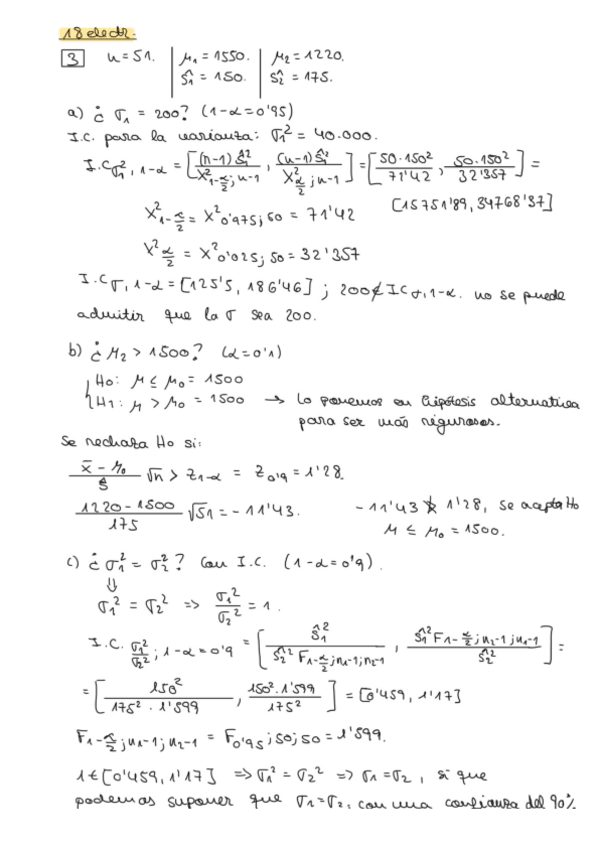 18 electr.
3 n=51. | μ1 = 1550. | μ2 = 1220.
ŝ1 = 150. | ŝ2 = 175.
a) ¿ σ1 = 200? (1-α=0'95)
I.C. para la varianza: σ1² = 40.000.
I.C σ1², 1-α = [(n-1)ŝ1² / χ²1-α/2;n-1 , (n-1)ŝ1² / χ²α/2;n-1] = [50·150² / 71'42 , 50·150² / 32'357] =
[15751'89, 34768'37]
χ²1-α/2 = χ²0'975;50 = 71'42
χ²α/2 = χ²0'025;50 = 32'357
I.C σ, 1-α = [125'5, 186'46] ; 200 ∉ I.C σ, 1-α. no se puede
admitir que la σ sea 200.
b) ¿ μ2 > 1500? (α=0'1)
H0: μ ≤ μ0 = 1500
H1: μ > μ0 = 1500 → Lo ponemos en hipótesis alternativa
para ser más rigurosos.
Se rechaza H0 si:
x̄ - μ0 / ŝ √n > Z1-α = Z0'9 = 1'28.
1220-1500 / 175 √51 = -11'43. -11'43 ≯ 1'28, se acepta H0
μ ≤ μ0 = 1500.
c) ¿ σ1² = σ2²? Con I.C. (1-α=0'9).
⇓
σ1² = σ2² => σ1²/σ2² = 1.
I.C. σ1²/σ2² ; 1-α=0'9 = [ŝ1² / ŝ2² F1-α/2;n1-1;n2-1 , ŝ1² F1-α/2;n2-1;n1-1 / ŝ2²] =
= [150² / 175²·1'599 , 150²·1'599 / 175²] = [0'459, 1'17]
F1-α/2;n1-1;n2-1 = F0'95;50;50 = 1'599.
1 ∈ [0'459, 1'17] => σ1² = σ2² => σ1 = σ2, sí que
podemos suponer que σ1=σ2, con una confianza del 90%